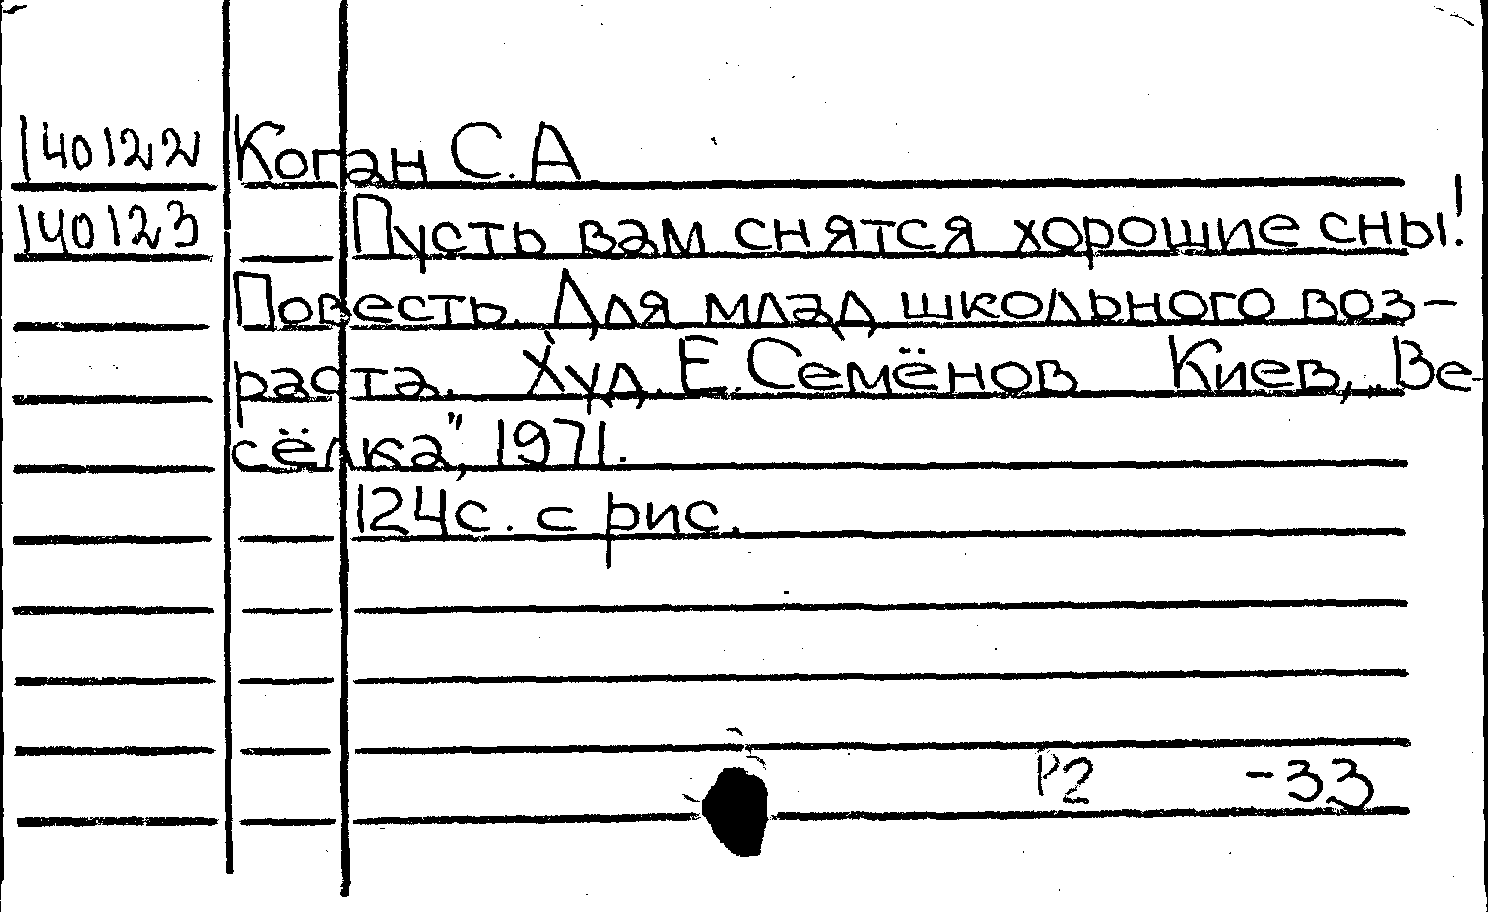 140122 Коган С.А
140123 Пусть вам снятся хорошие сны!
Повесть. Для млад школьного воз-
раста. Худ. Е. Семёнов Киев, „Ве-
сёлка", 1971.
124с. с рис.
Р2 -33